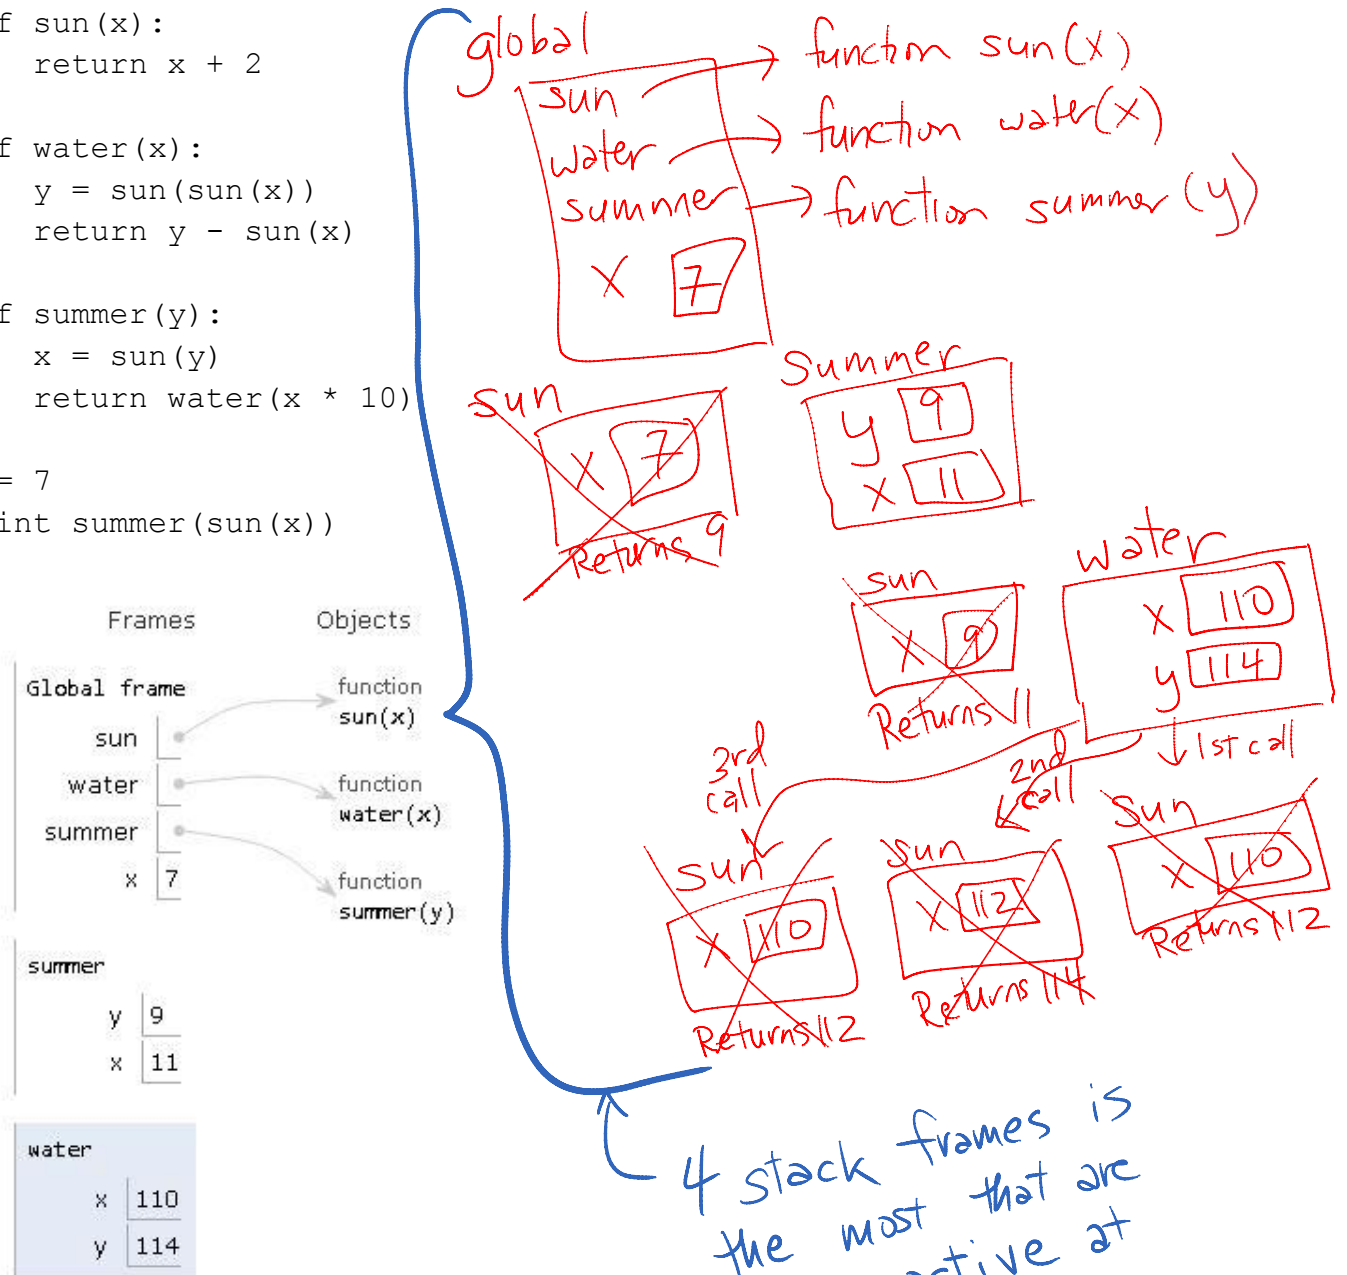 f sun(x):
return x + 2
f water(x):
y = sun(sun(x))
return y - sun(x)
f summer(y):
x = sun(y)
return water(x * 10)
= 7
int summer(sun(x))
Frames Objects
Global frame
sun
water
summer
x 7
function
sun(x)
function
water(x)
function
summer(y)
summer
y 9
x 11
water
x 110
y 114
global
sun → function sun(x)
water → function water(x)
sumnner → function summer (y)
x 7
sun
x 7
Returns 9
Summer
y 9
x 11
sun
x 9
Returns 11
water
x 110
y 114
1st call
2nd
call
3rd
call
sun
x 110
Returns 112
sun
x 112
Returns 114
Sun
x 110
Returns 112
4 stack frames is
the most that are
active at